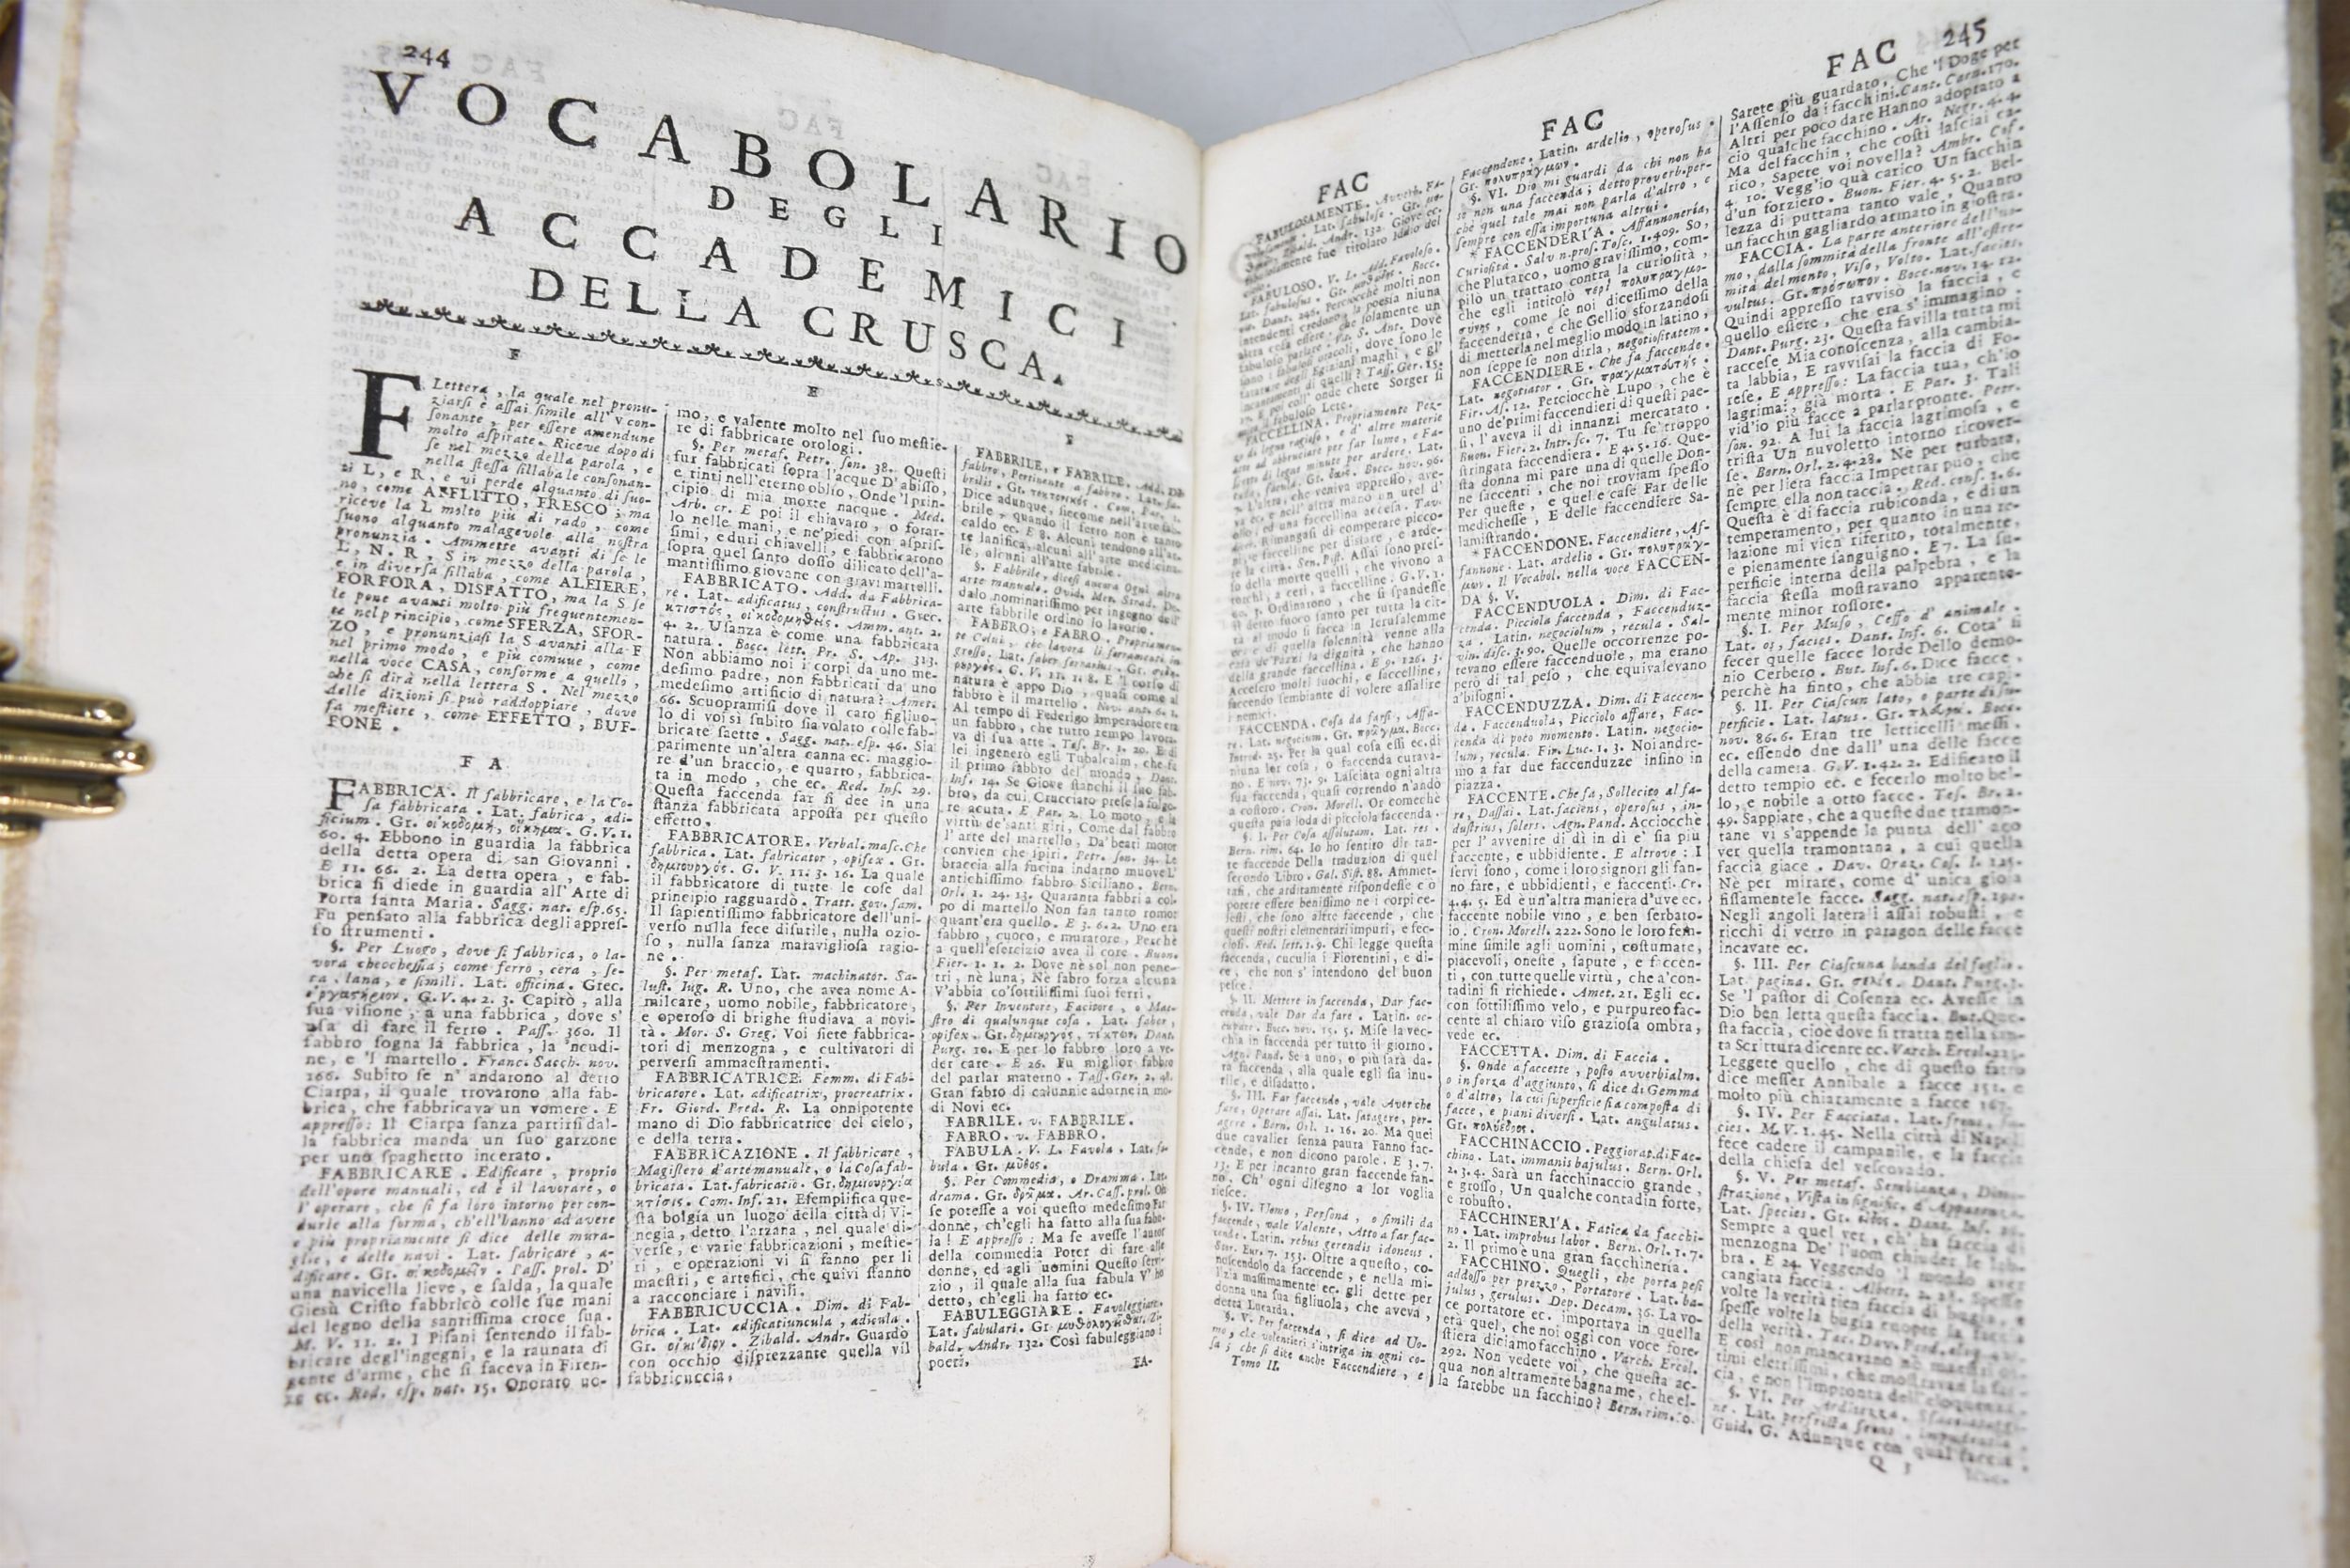 244
VOCABOLARIO
DEGLI
ACCADEMICI
DELLA CRUSCA.
F
F Lettera, la quale nel pronu-
ziarsi è assai simile all'V con-
sonante, per essere amendune
molto aspirate. Riceve dopo di
se nel mezzo della parola, e
nella stessa sillaba le consonan-
ti L, e R, e vi perde alquanto di suo-
no, come AFFLITTO, FRESCO; ma
riceve la L molto più di rado, come
suono alquanto malagevole alla nostra
pronunzia. Ammette avanti di se le
L, N, R, S in mezzo della parola,
e in diversa sillaba, come ALFIERE,
FORFORA, DISFATTO, ma la S se
le pone avanti molto più frequentemen-
te nel principio, come SFERZA, SFOR-
ZO, e pronunziasi la S avanti alla F
nel primo modo, e più comune, come
nella voce CASA, conforme a quello,
che si dirà nella lettera S. Nel mezzo
delle dizioni si può raddoppiare, dove
fa mestiere, come EFFETTO, BUF-
FONE.
F A
FABBRICA. Il fabbricare, e la Co-
sa fabbricata. Lat. fabrica, ædi-
ficium. Gr. οἰκοδομή, οἴκημα. G. V. 1.
60. 4. Ebbono in guardia la fabbrica
della detta opera di san Giovanni.
E 11. 66. 2. La detta opera, e fab-
brica si diede in guardia all'Arte di
Porta santa Maria. Sagg. nat. esp. 65.
Fu pensato alla fabbrica degli appres-
so strumenti.
§. Per Luogo, dove si fabbrica, o la-
vora checchessia; come ferro, cera, se-
ta, lana, e simili. Lat. officina. Grec.
ἐργαστήριον. G. V. 4. 2. 3. Capitò, alla
sua visione, a una fabbrica, dove s'
usa di fare il ferro. Pass. 360. Il
fabbro sogna la fabbrica, la 'ncudi-
ne, e 'l martello. Franc. Sacch. nov.
166. Subito se n' andarono al detto
Ciarpa, il quale trovarono alla fab-
brica, che fabbricava un vomere. E
appresso: Il Ciarpa sanza partirsi dal-
la fabbrica manda un suo garzone
per uno spaghetto incerato.
FABBRICARE. Edificare, proprio
dell'opere manuali, ed è il lavorare, o
l'operare, che si fa loro intorno per con-
durle alla forma, ch'ell'hanno ad avere
e più propriamente si dice delle mura-
glie, e delle navi. Lat. fabricare, æ-
dificare. Gr. οἰκοδομεῖν. Pass. prol. D'
una navicella lieve, e salda, la quale
Giesù Cristo fabbricò colle sue mani
del legno della santissima croce sua.
M. V. 11. 2. I Pisani sentendo il fab-
bricare degl'ingegni, e la raunata di
gente d'arme, che si faceva in Firen-
ze ec. Red. esp. nat. 15. Onorato uo-
F
mo, e valente molto nel suo mestie-
re di fabbricare orologi.
§. Per metaf. Petr. son. 38. Questi
fur fabbricati sopra l'acque D'abisso,
e tinti nell'eterno oblio, Onde 'l prin-
cipio di mia morte nacque. Med.
Arb. cr. E poi il chiavaro, o forar-
lo nelle mani, e ne'piedi con aspris-
simi, e duri chiavelli, e fabbricarono
sopra quel santo dosso dilicato dell'a-
mantissimo giovane con gravi martelli.
FABBRICATO. Add. da Fabbrica-
re. Lat. ædificatus, constructus. Grec.
κτιστός, οἰκοδομηθείς. Amm. ant. 2.
4. 2. Usanza è come una fabbricata
natura. Bocc. lett. Pr. S. Ap. 313.
Non abbiamo noi i corpi da uno me-
desimo padre, non fabbricati da uno
medesimo artificio di natura? Amet.
66. Scuopramisi dove il caro figliuo-
lo di voi sì subito sia volato colle fab-
bricate saette. Sagg. nat. esp. 46. Sia
parimente un'altra canna ec. maggio-
re d'un braccio, e quarto, fabbrica-
ta in modo, che ec. Red. Ins. 29.
Questa faccenda far si dee in una
stanza fabbricata apposta per questo
effetto.
FABBRICATORE. Verbal. masc. Che
fabbrica. Lat. fabricator, opifex. Gr.
δημιουργός. G. V. 11. 3. 16. La quale
il fabbricatore di tutte le cose dal
principio ragguardò. Tratt. gov. fam.
Il sapientissimo fabbricatore dell'uni-
verso nulla fece disutile, nulla ozio-
so, nulla sanza maravigliosa ragio-
ne.
§. Per metaf. Lat. machinator. Sa-
lust. Iug. R. Uno, che avea nome A-
milcare, uomo nobile, fabbricatore,
e operoso di brighe studiava a novi-
tà. Mor. S. Greg. Voi siete fabbrica-
tori di menzogna, e cultivatori di
perversi ammaestramenti.
FABBRICATRICE. Femm. di Fab-
bricatore. Lat. ædificatrix, procreatrix.
Fr. Giord. Pred. R. La onnipotente
mano di Dio fabbricatrice del cielo,
e della terra.
FABBRICAZIONE. Il fabbricare,
Magistero d'arte manuale, o la Cosa fab-
bricata. Lat. fabricatio. Gr. δημιουργία
κτίσις. Com. Inf. 21. Esemplifica que-
sta bolgia un luogo della città di Vi-
negia, detto l'arzana, nel quale di-
verse, e varie fabbricazioni, mestie-
ri, e operazioni vi si fanno per li
maestri, e artefici, che quivi stanno
a racconciare i navili.
FABBRICUCCIA. Dim. di Fab-
brica. Lat. ædificatiuncula, ædicula.
Gr. οἰκίδιον. Zibald. Andr. Guardò
con occhio disprezzante quella vil
fabbricuccia.
F
FABBRILE, e FABRILE. Add. Di
fabbro, Pertinente a fabbro. Lat. fa-
brilis. Gr. τεκτονικός. Com. Par. 1.
Dice adunque, siccome nell'arte fab-
brile, quando il ferro non è tanto
caldo ec. E 8. Alcuni tendono all'ar-
te lanifica, alcuni all'arte medicina-
le, alcuni all'arte fabrile.
§. Fabbrile, dicesi ancora Ogni altra
arte manuale. Ovid. Met. Strad. De-
dalo nominatissimo per ingegno dell'
arte fabbrile ordino lo lavorio.
FABBRO, e FABRO. Propriamen-
te Colui, che lavora li ferramenti in
grosso. Lat. faber ferrarius. Gr. σιδη-
ρουργός. G. V. 11. 1. 8. E 'l corso di
natura è appo Dio, quasi come al
fabbro è il martello. Nov. ant.
Al tempo di Federigo Imperadore era
un fabbro, che tutto tempo lavora-
va di sua arte. Tes. Br. 1. 20. E di
lei ingenerò egli Tubalcaim, che fu
il primo fabbro del mondo. Dant.
Inf. 14. Se Giove stanchi il suo fab-
bro, da cui Crucciato prese la folgo-
re acuta. E Par. 2. Lo moto, e la
virtù de'santi giri, Come dal fabbro
l'arte del martello, Da'beati motor
convien che spiri. Petr. son. 34. Le
braccia alla fucina indarno muove L'
antichissimo fabbro Siciliano. Bern.
Orl. 1. 24. 13. Quaranta fabbri a col-
po di martello Non fan tanto romor
quant'era quello. E 3. 6. 2. Uno era
fabbro, cuoco, e muratore, Perchè
a quell'esercizio avea il core. Buon.
Fier. 1. 1. 2. Dove nè sol non pene-
tri, nè luna, Nè fabro forza alcuna
V'abbia co'sottilissimi suoi ferri.
§. Per Inventore, Facitore, o Mae-
stro di qualunque cosa. Lat. faber,
opifex. Gr. δημιουργός, τέκτων. Dant.
Purg. 10. E per lo fabbro loro a ve-
der care. E 26. Fu miglior fabbro
del parlar materno. Tass. Ger. 2. 48.
Gran fabro di calunnie adorne in mo-
di Novi ec.
FABRILE. v. FABBRILE.
FABRO. v. FABBRO.
FABULA. V. L. Favola. Lat. fa-
bula. Gr. μῦθος.
§. Per Commedia, o Dramma. Lat.
drama. Gr. δρᾶμα. Ar. Cass. prol. Oh
se potesse a voi questo medesimo Far
donne, ch'egli ha fatto alla sua fabu-
la! E appresso: Ma se avesse l'autor
della commedia Poter di fare alle
donne, ed agli uomini Questo servi-
zio, il quale alla sua fabula V' ho
detto, ch'egli ha fatto ec.
FABULEGGIARE. Favoleggiare.
Lat. fabulari. Gr. μυθολογεῖσθαι. Zi-
bald. Andr. 132. Così fabuleggiano i
poeti.
FA-
FAC
FABULOSAMENTE. Avverb. Fa-
Lat. fabulose. Gr.
Zibald. Andr. 132. Giove ec.
fabulosamente fue titolato Iddio del
FABULOSO. V. L. Add. Favoloso.
Lat. fabulosus. Gr. μυθώδης. Bocc.
vit. Dant. 246. Perciocchè molti non
intendenti credono, la poesia niuna
altra cosa essere, che solamente un
fabuloso parlare. Vit. S. Ant. Dove
sono i fabulosi oracoli, dove sono le
degli Egiziani maghi, e gl'
incantamenti di quelli? Tass. Ger. 15.
E poi coll' onde chete Sorger il
fabuloso Lete.
FACCELLINA. Propriamente Pez-
zo di legno ragioso, e d' altre materie
atte ad abbruciare per far lume, e Fa-
scetto di legne minute per ardere. Lat.
tæda, facula. Gr. Bocc. nov. 96.
L'altra, che veniva appresso, ave-
va ec. e nell'altra mano un utel d'
olio, ed una faccellina accesa. Tav.
Rit. Rimangasi di comperare picco-
le faccelline per disfare, e arde-
re la città. Sen. Pist. Assai sono pres-
so della morte quelli, che vivono a
torchi, a ceri, a faccelline. G. V. 1.
60. 3. Ordinarono, che si spandesse
il detto fuoco santo per tutta la cit-
tà al modo si facea in Jerusalemme
ec. e di quella solennità venne alla
casa de'Pazzi la dignità, che hanno
della grande faccellina. E 9. 126. 3.
Accesero molti fuochi, e faccelline,
faccendo sembiante di volere assalire
i nemici.
FACCENDA. Cosa da farsi, Affa-
re. Lat. negocium. Gr. πρᾶγμα. Bocc.
Introd. 25. Per la qual cosa essi ec. di
niuna lor cosa, o faccenda curava-
no. E nov. 73. 9. Lasciata ogni altra
sua faccenda, quasi correndo n'andò
a costoro. Cron. Morell. Or comechè
questa paia loda di picciola faccenda.
§. I. Per Cosa assolutam. Lat. res.
Bern. rim. 64. Io ho sentito dir tan-
te faccende Della traduzion di quel
secondo Libro. Gal. Sist. 88. Ammet-
tasi, che arditamente rispondesse e ò
potere essere benissimo ne i corpi ce-
lesti, che sono altre faccende, che
questi nostri elementari impuri, e fec-
ciosi. Red. lett. 1. 9. Chi legge questa
faccenda, cuculia i Fiorentini, e di-
ce, che non s' intendono del buon
pesce.
§. II. Mettere in faccenda, Dar fac-
cenda, vale Dar da fare. Latin. oc-
cupare. Bocc. nov. 15. 5. Mise la vec-
chia in faccenda per tutto il giorno.
Agn. Pand. Se a uno, o più sarà da-
ta faccenda, alla quale egli sia inu-
tile, e disadatto.
§. III. Far faccende, vale Aver che
fare, Operare assai. Lat. satagere, per-
agere. Bern. Orl. 1. 16. 20. Ma quei
due cavalier senza paura Fanno fac-
cende, e non dicono parole. E 3. 7.
13. E per incanto gran faccende fan-
no, Ch' ogni disegno a lor voglia
riesce.
§. IV. Uomo, Persona, o simili da
faccende, vale Valente, Atto a far fac-
cende. Latin. rebus gerendis idoneus.
Stor. Eur. 7. 153. Oltre a questo, co-
noscendolo da faccende, e nella mi-
lizia massimamente ec. gli dette per
donna una sua figliuola, che aveva,
detta Lucarda.
§. V. Per faccenda, si dice ad Uo-
mo, che volentieri s'intriga in ogni co-
sa; che si dice anche Faccendiere, e
Tomo II.
FAC
Faccendone. Latin. ardelio, operosus.
Gr. πολυπράγμων.
§. VI. Dio mi guardi da chi non ha
se non una faccenda; detto proverb. per-
chè quel tale mai non parla d'altro, e
sempre con essa importuna altrui.
* FACCENDERI'A. Affannoneria,
Curiosità. Salvin. pros. Tosc. 1. 409. So,
che Plutarco, uomo gravissimo, com-
pilò un trattato contra la curiosità,
che egli intitolò περὶ πολυπραγμο-
σύνης, come se noi dicessimo della
faccenderia, e che Gellio sforzandosi
di metterla nel meglio modo in latino,
non seppe se non dirla, negotiositatem.
FACCENDIERE. Che fa faccende.
Lat. negotiator. Gr. πραγματευτής.
Fir. As. 12. Perciocchè Lupo, che è
uno de'primi faccendieri di questi pae-
si, l'aveva il dì innanzi mercatato.
Buon. Fier. 2. Intr. sc. 7. Tu se'troppo
stringata faccendiera. E 4. 5. 16. Que-
sta donna mi pare una di quelle Don-
ne saccenti, che noi troviam spesso
Per queste, e quelle case Far delle
medichesse, E delle faccendiere Sa-
lamistrando.
* FACCENDONE. Faccendiere, Af-
fannone. Lat. ardelio. Gr. πολυπράγ-
μων. Il Vocabol. nella voce FACCEN-
DA §. V.
FACCENDUOLA. Dim. di Fac-
cenda. Picciola faccenda, Faccenduz-
za. Latin. negociolum, recula. Sal-
vin. disc. 3. 90. Quelle occorrenze po-
tevano essere faccenduole, ma erano
però di tal peso, che equivalevano
a'bisogni.
FACCENDUZZA. Dim. di Faccen-
da. Faccenduola, Picciolo affare, Fac-
cenda di poco momento. Latin. negocio-
lum, recula. Fir. Luc. 1. 3. Noi andre-
mo a far due faccenduzze insino in
piazza.
FACCENTE. Che fa, Sollecito al fa-
re, Dassai. Lat. faciens, operosus, in-
dustrius, solers. Agn. Pand. Acciocchè
per l'avvenire di dì in dì e' sia più
faccente, e ubbidiente. E altrove: I
servi sono, come i loro signori gli fan-
no fare, e ubbidienti, e faccenti. Cr.
4. 4. 5. Ed è un'altra maniera d'uve ec.
faccente nobile vino, e ben serbato-
io. Cron. Morell. 222. Sono le loro fem-
mine simile agli uomini, costumate,
piacevoli, oneste, sapute, e faccen-
ti, con tutte quelle virtù, che a'con-
tadini si richiede. Amet. 21. Egli ec.
con sottilissimo velo, e purpureo fac-
cente al chiaro viso graziosa ombra,
vede ec.
FACCETTA. Dim. di Faccia.
§. Onde a faccette, posto avverbialm.
o in forza d'aggiunto, si dice di Gemma
o d'altro, la cui superficie sia composta di
facce, e piani diversi. Lat. angulatus.
Gr. πολύεδρος.
FACCHINACCIO. Peggiorat. di Fac-
chino. Lat. immanis bajulus. Bern. Orl.
2. 3. 4. Sarà un facchinaccio grande,
e grosso, Un qualche contadin forte,
e robusto.
FACCHINERI'A. Fatica da facchi-
no. Lat. improbus labor. Bern. Orl. 1. 7.
2. Il primo è una gran facchineria.
FACCHINO. Quegli, che porta pesi
addosso per prezzo, Portatore. Lat. ba-
julus, gerulus. Dep. Decam. 36. La vo-
ce portatore ec. importava in quella
età quel, che noi oggi con voce fore-
stiera diciamo facchino. Varch. Ercol.
292. Non vedete voi, che questa ac-
qua non altramente bagna me, che el-
la farebbe un facchino? Bern. rim.
FAC 245
Sarete più guardato, Che 'l Doge per
l'Assenso da i facchini. Cant. Carn. 170.
Altri per poco dare Hanno adoprato a
cio qualche facchino. Ar. Negr. 4. 4.
Ma del facchin, che costì lasciai ca-
rico, Sapete voi novella? Ambr. Cof.
4. 10. Vegg'io quà carico Un facchin
d'un forziero. Buon. Fier. 4. 5. 2. Bel-
lezza di puttana tanto vale, Quanto
un facchin gagliardo armato in giostra.
FACCIA. La parte anteriore dell'uo-
mo, dalla sommità della fronte all'estre-
mità del mento, Viso, Volto. Lat. facies,
vultus. Gr. πρόσωπον. Bocc. nov. 14. 12.
Quindi appresso ravvisò la faccia, e
quello essere, che era s'immagino.
Dant. Purg. 23. Questa favilla tutta mi
raccese Mia conoscenza, alla cambia-
ta labbia, E ravvisai la faccia di Fo-
rese. E appresso: La faccia tua, ch'io
lagrimai, già morta. E Par. 3. Tali
vid'io più facce a parlar pronte. Petr.
son. 92. A lui la faccia lagrimosa, e
trista Un nuvoletto intorno ricover-
se. Bern. Orl. 2. 4. 28. Nè per turbata,
nè per lieta faccia Impetrar può, che
sempre ella non taccia. Red. cons. 1. 6.
Questa è di faccia rubiconda, e di un
temperamento, per quanto in una re-
lazione mi vien riferito, totalmente,
e pienamente sanguigno. E 7. La su-
perficie interna della palpebra, e la
faccia stessa mostravano apparente-
mente minor rossore.
§. I. Per Muso, Ceffo d' animale.
Lat. os, facies. Dant. Inf. 6. Cota' si
fecer quelle facce lorde Dello demo-
nio Cerbero. But. Inf. 6. Dice facce,
perchè ha finto, che abbia tre capi.
§. II. Per Ciascun lato, o parte di su-
perficie. Lat. latus. Gr. πλευρά. Bocc.
nov. 86. 6. Eran tre letticelli messi,
ec. essendo due dall' una delle facce
della camera. G. V. 1. 42. 2. Edificato il
detto tempio ec. e fecerlo molto bel-
lo, e nobile a otto facce. Tes. Br. 2.
49. Sappiate, che a queste due tramon-
tane vi s'appende la punta dell' ago
ver quella tramontana, a cui quella
faccia giace. Dav. Oraz. Cos. I. 125.
Nè per mirare, come d' unica gioia
fissamente le facce. Sagg. nat. esp.
Negli angoli laterali assai robusti, e
ricchi di vetro in paragon delle facce
incavate ec.
§. III. Per Ciascuna banda del foglio.
Lat. pagina. Gr. σελίς. Dant. Purg. 3.
Se 'l pastor di Cosenza ec. Avesse in
Dio ben letta questa faccia. But. Que-
sta faccia, cioè dove si tratta nella san-
ta Scrittura dicente ec. Varch. Ercol.
Leggere quello, che di questo fatto
dice messer Annibale a facce 151. e
molto più chiaramente a facce 167.
§. IV. Per Facciata. Lat. frons, fa-
cies. M. V. 1. 45. Nella città di Napoli
fece cadere il campanile, e la faccia
della chiesa del vescovado.
§. V. Per metaf. Sembianza, Dimo-
strazione, Vista in signific. d' Apparenza.
Lat. species. Gr. εἶδος. Dant. Inf. 16.
Sempre a quel ver, ch' ha faccia di
menzogna De' l'uom chiuder le lab-
bra. E 24. Veggendo 'l mondo aver
cangiata faccia. Albert. 2. 28. Spesse
volte la verità tien faccia di bugia, e
spesse volte la bugia cuopre la faccia
della verità. Tac. Dav.
E così non mancavano nè maestri ot-
timi elettissimi, che mostravan la fac-
cia, e non l'impronta dell'eloquenza.
§. VI. Per Arditezza, Sfacciataggi-
ne. Lat. perfricta frons, impudentia.
Guid. G. Adunque con qual faccia
Q 3